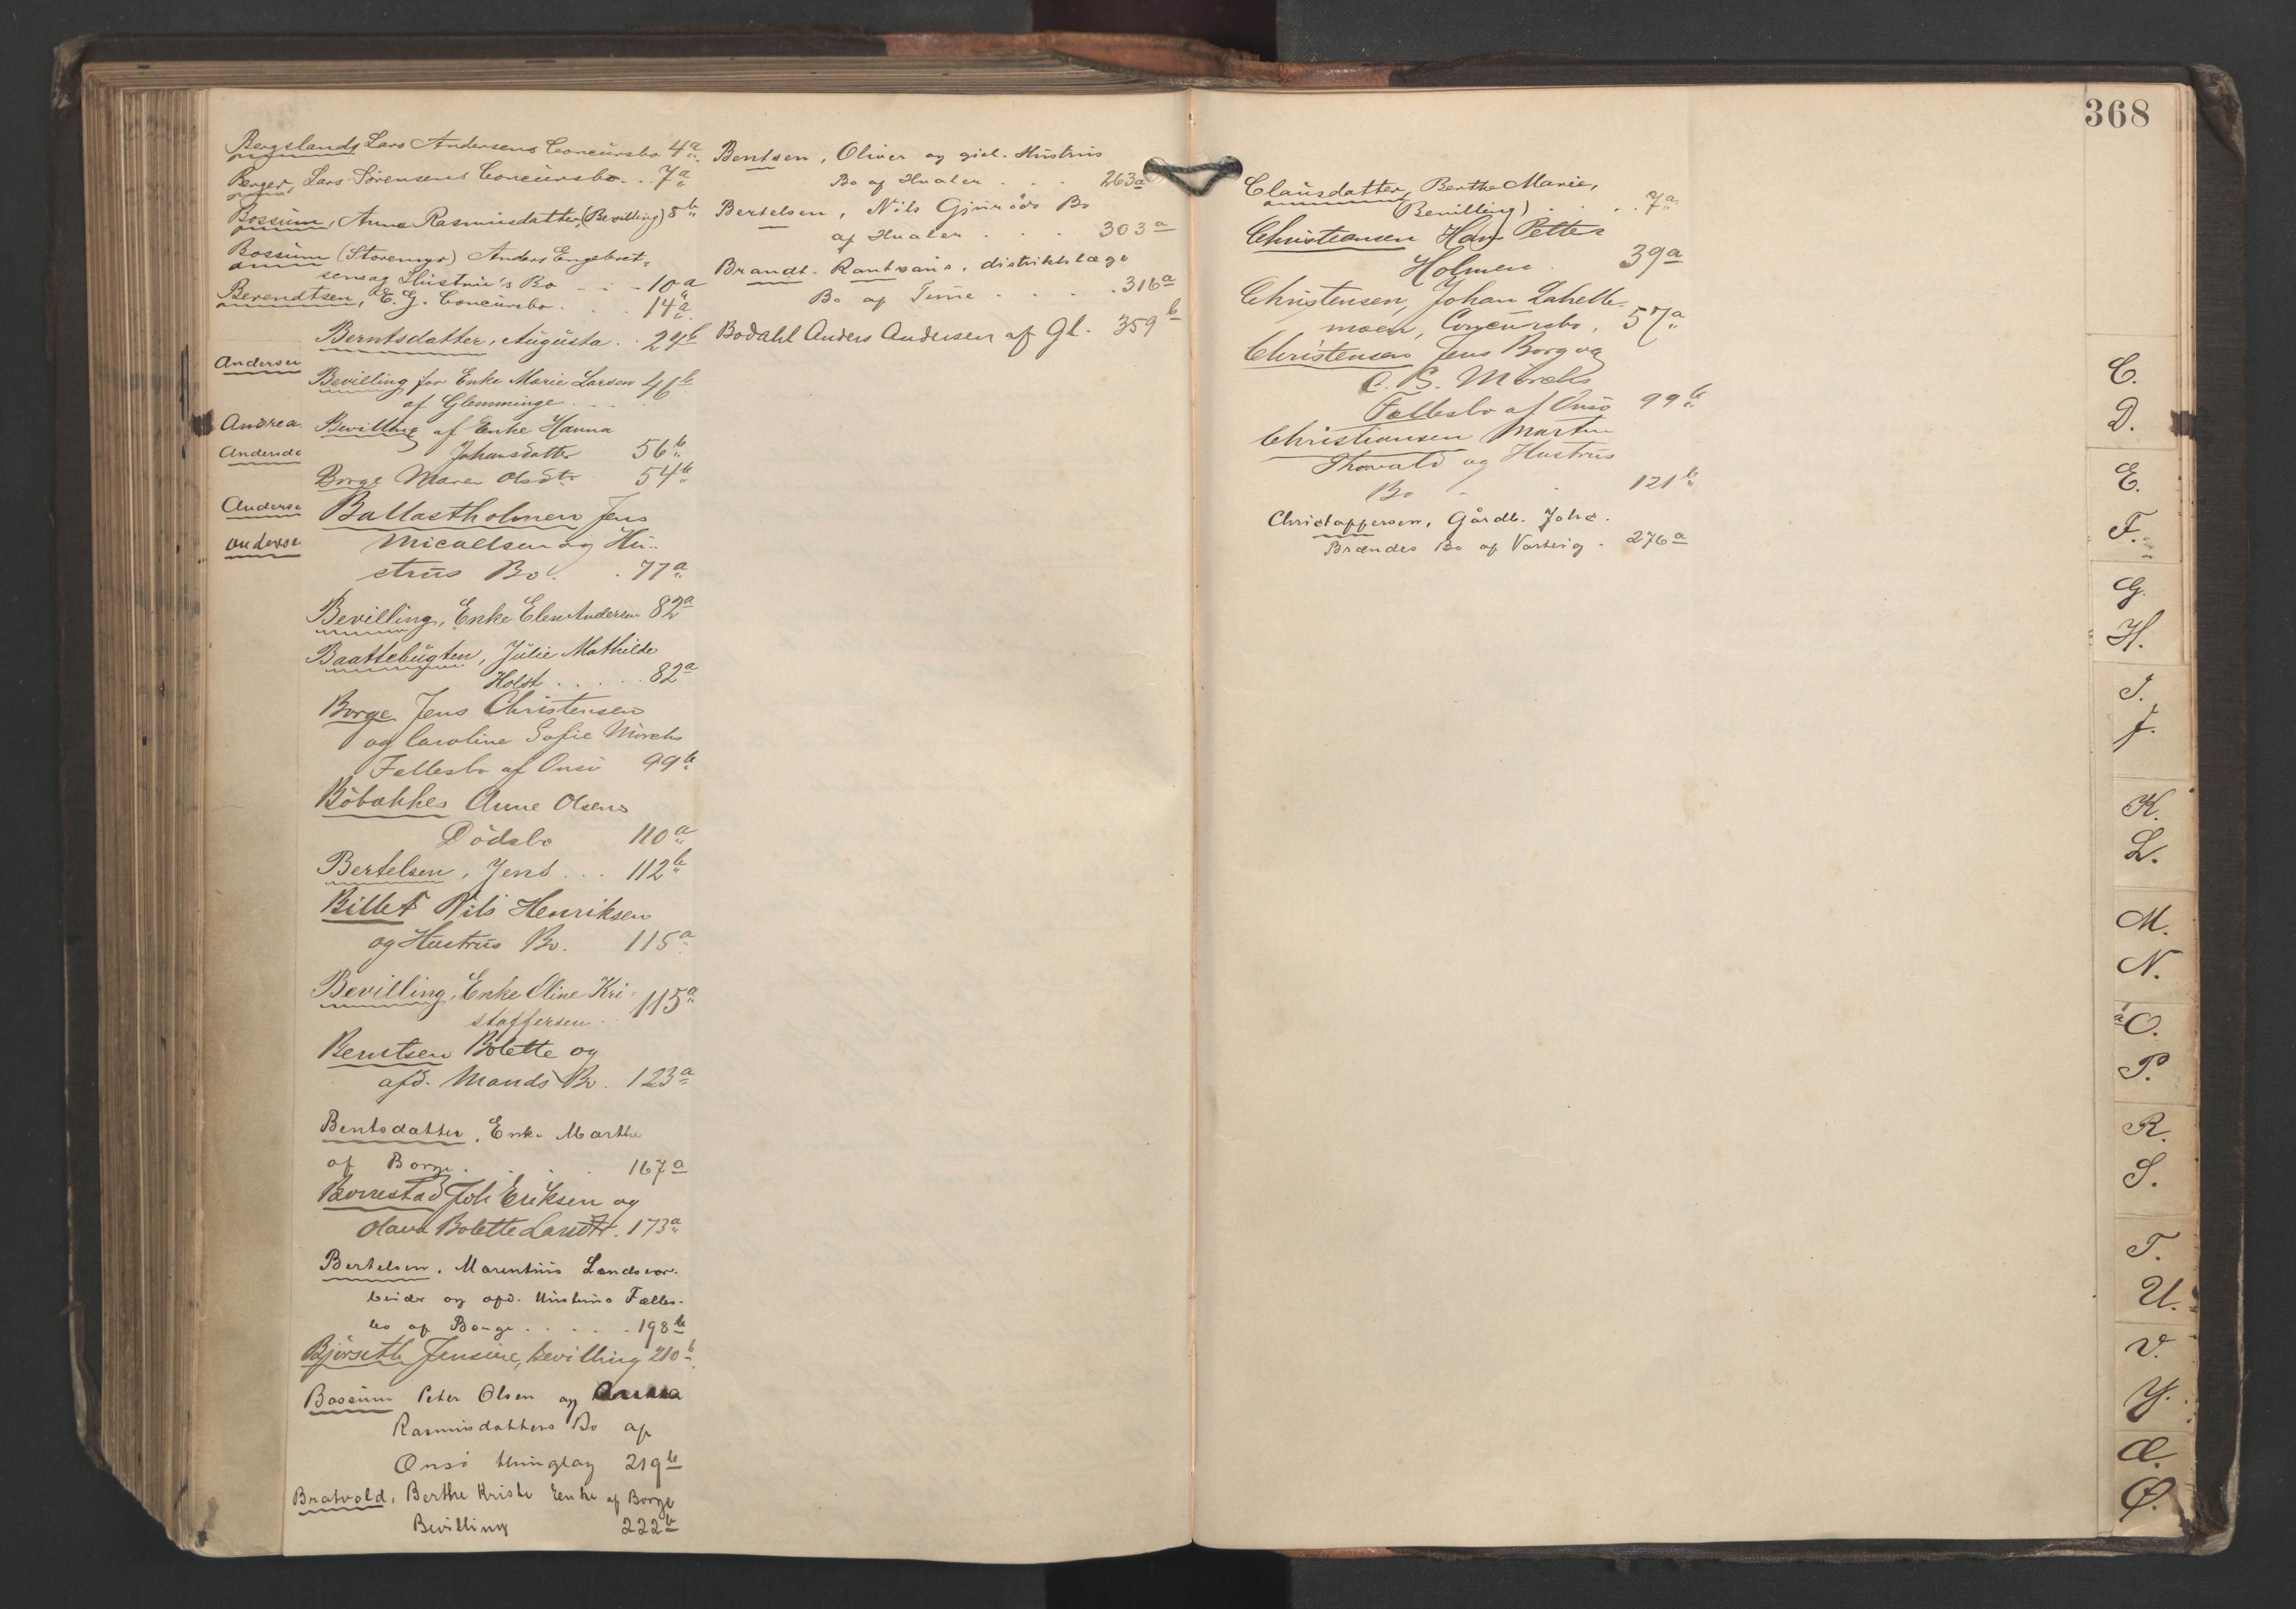 Bergsland, Lars Andersens Concursbo 4a
Berger, Lars Sörensens Concursbo . . 7a
Bossum, Anna Rasmusdatter, (Bevilling) 8b
Bossum (Storemyr) Anders Engebret-
sens og Hustru's Bo - - - 10a
Berendtsen, E. G. Concursbo . . . 14a
Berntsdatter, Augusta . . 24b
Andersen
Bevilling for Enke Marie Larsen 46b
af Glemminge . . .
Andrea
Bevilling af Enke Hanna
Andersda
Johansdatter 56b
Borge Maren Olsdtr 54b
Anderse
Ballastholmen Jens
Anderse
Micaelsen og Hu-
strus Bo . . 77a
Bevilling, Enke Elen Andersen 82a
Baattebugten, Julie Mathilde
Holst . . . . . 82a
Borge Jens Christensen
og Caroline Sofie Mörchs
Fællesbo af Onsö 99b
Böbakkes Anne Olsens
Dödsbo 110a
Bertelsen, Jens . . . 112b
Billet Nils Henriksen
og Hustrus Bo. 115a
Bevilling, Enke Oline Kri-
stoffersen . 115a
Berntsen Bolette og
afd. Mands Bo. 123a
Bentsdatter, Enke Marthe
af Borge . . . . 167a
Borrestad Joh Eriksen og
Olava Bolette Larsdtr. 173a
Bertelsen, Marentius Landsvor-
beider og afd. Hustrus Fælles-
bo af Borge . . . . . 198b
Björseth Jensine, bevilling 210b
Bossum Peter Olsen og Anna
Rasmusdatters Bo af
Onsö thinglag 219b
Bratvold, Berthe Kristi Enke af Borge
Bevilling 222b
Bentsen, Oliver og gjel. Hustrus
Bo af Hvaler . . . 263a
Bertelsen, Nils Gjuröds Bo
af Hvaler . . . 303a
Brandt - Rantzaus, distriktslæge
Bo af Tune . . . . . 316a
Bodahl Anders Andersen af Gl. 359b
368
Clausdatter, Berthe Marie,
(Bevilling) . . . . 7a
Christiansen Hans Petter
Holmen . 39a
Christensen, Johan Lahelle-
moen, Concursbo, 57a
Christensens Jens Borg og
C. S. Mörchs
Fællesbo af Onsö 99b
Christiansen Martin
Thorvald og Hustrus
Bo - 121b
Christoffersen, Gårdb. Johs.
Brændes Bo af Varteig - 276a
C.
D.
E.
F.
G.
H.
I.
J.
K.
L.
M.
N.
O.
P.
R.
S.
T.
U.
V.
Y.
Æ.
Ø.